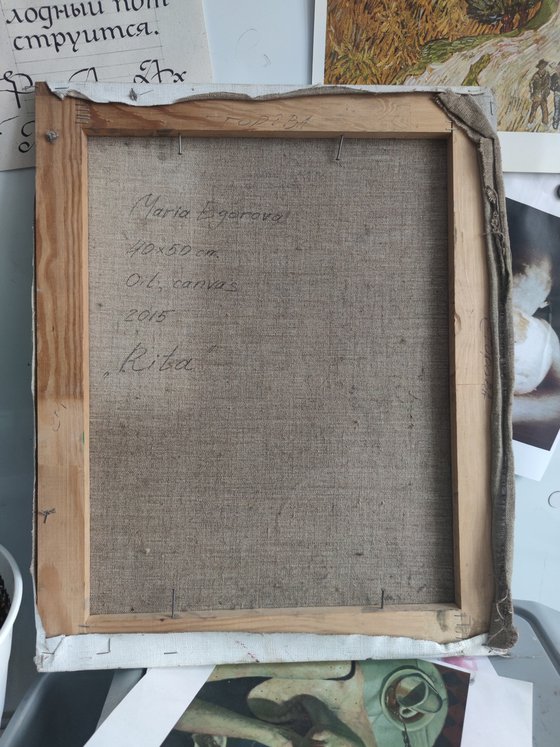 лодный пот
струится.
Maria Egorova
40x50 cm
Oil, canvas
2015
„Rita"